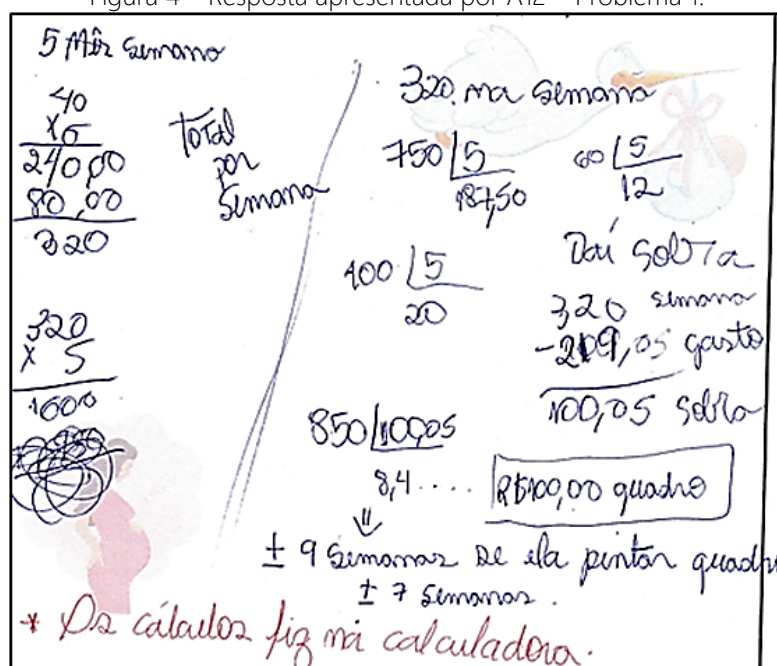 Figura 4 – Resposta apresentada por A12 – Problema 1.
5 Mês semana
40
x6
240,00
80,00
320
Total
por
semana
320
x 5
1600
320 na semana
750 5
187,50
60 5
12
100 5
20
Daí sobra
320 semana
-219,05 gasto
100,05 sobra
850 100,05
8,4....
R$100,00 quadro
± 9 semanas se ela pintar quadr
± 7 semanas.
* Os cálculos fiz na calculadora.